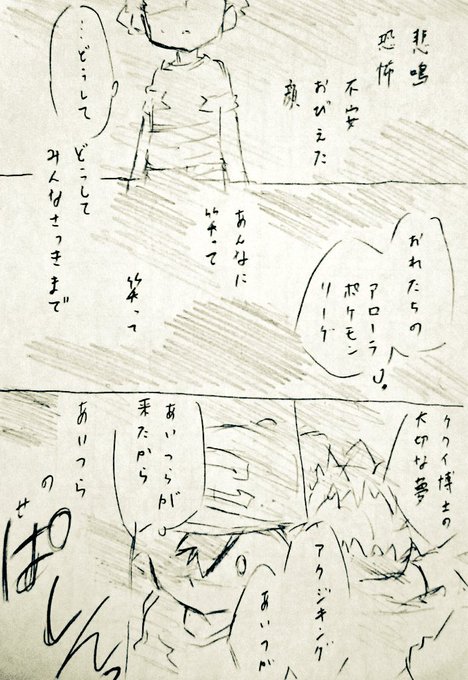 悲鳴
恐怖
不安
おびえた
顔
…どうして
おれたちの
アローラ
ポケモン
リーグ
あんなに
笑って
笑って
どうして
みんなさっきまで
ククイ博士の
大切な夢
アクジキング
あいつが
あいつらが
来たから
あいつら
の
せ
ぱしんっ